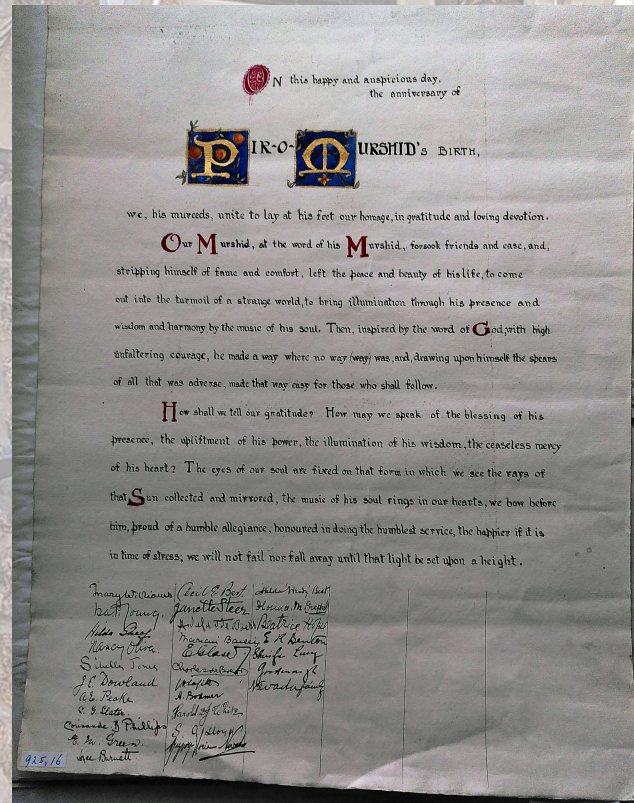 ON this happy and auspicious day,
the anniversary of
PIR-O-MURSHID's BIRTH,
we, his mureeds, unite to lay at his feet our homage, in gratitude and loving devotion.
Our Murshid, at the word of his Murshid, forsook friends and ease, and,
stripping himself of fame and comfort, left the peace and beauty of his life, to come
out into the turmoil of a strange world, to bring illumination through his presence and
wisdom and harmony by the music of his soul. Then, inspired by the word of God, with high
unfaltering courage, he made a way where no way (way) was, and, drawing upon himself the spears
of all that was adverse, made that way easy for those who shall follow.
How shall we tell our gratitude? How may we speak of the blessing of his
presence, the upliftment of his power, the illumination of his wisdom, the ceaseless mercy
of his heart? The eyes of our soul are fixed on that form in which we see the rays of
that Sun collected and mirrored, the music of his soul rings in our hearts, we bow before
him, proud of a humble allegiance, honoured in doing the humblest service, the happier if it is
in time of stress; we will not fail nor fall away until that light be set upon a height.
Mary Williams
Young
Nancy
Jones
J. E. Dowland
Peake
Slater
Phillips
Green
Burnett
Cecil E. Best
Janette Steer
Marian
A. Bodmer
Harold
Lloyd
Florence M.
Beatrice
E. R. Benton
Sherifa Lucy
Goodenough
Nevada family
925.16